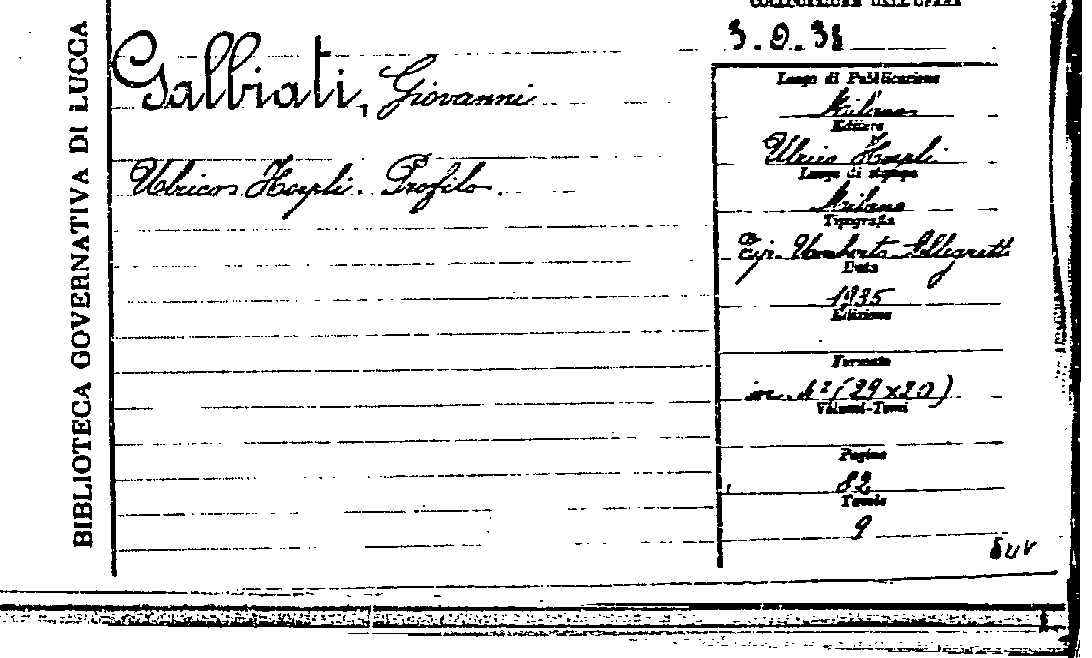 BIBLIOTECA GOVERNATIVA DI LUCCA
COLLOCAZIONE DELL'OPERA
3.0.31
Galbiati, Giovanni
Ulricus Hoepli. Profilo.
Luogo di Pubblicazione
Milano
Editore
Ulrico Hoepli
Luogo di stampa
Milano
Tipografia
Tip. Umberto Allegretti
Data
1935
Edizione
Formato
in 4° (29x20)
Volumi-Tomi
Pagine
82
Tavole
9